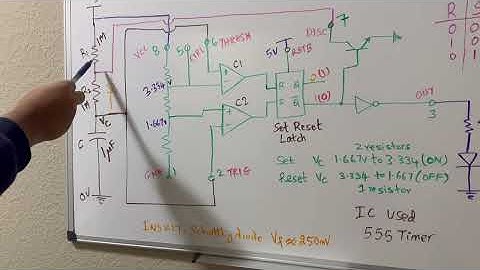 R S
DISC 7
1M
R1
VCC 8 5 6 THRESH
CTRL
5V RSTB
C1
0 0
0
0
1
3.334V
R Q̅ 0(1)
S Q 1(0)
R2
1M
C2
OUT
3
1.667V
VC
C 1µF
Set Reset
Latch
2 resistors
Set VC 1.667V to 3.334(ON)
GND 1 2 TRIG
Reset VC 3.334 to 1.667(OFF)
1 resistor
0V
IC used
555 Timer
Schottky diode Vf ≈ 250mV